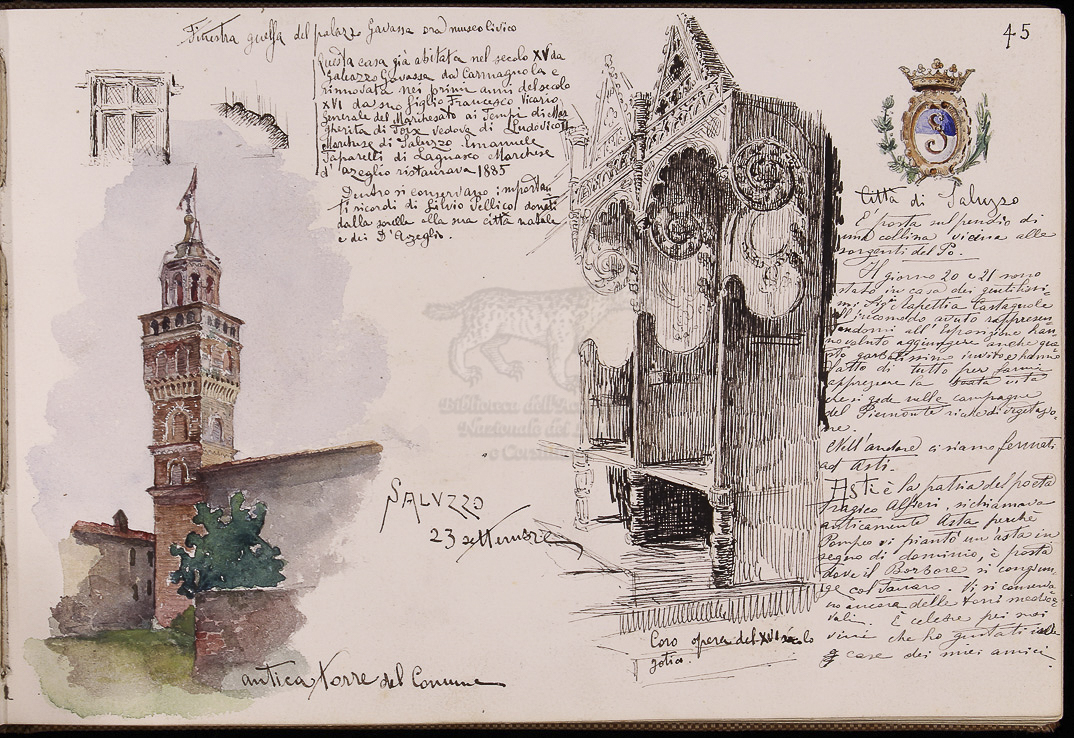 45
Finestra guelfa del palazzo Gavassa ora museo civico
Questa casa già abitata nel secolo XV da
Galeazzo Gavassa da Carmagnola e
rinnovata nei primi anni del secolo
XVI da suo figlio Francesco Vicario
Generale del Marchesato ai Tempi di Mar
gherita di Foix vedova di Ludovico II
Marchese di Saluzzo. Emanuele
Taparelli di Lagnasco Marchese
d'Azeglio ristaurava 1885
Dentro si conservano importan
ti ricordi di Silvio Pellico donati
dalla sorella alla sua città natale
e dei D'Azeglio.
Biblioteca dell'
Nazionale del
e Con
SALUZZO
23 settembre
antica Torre del Comune
Coro opera del XVI secolo
gotica.
Città di Saluzzo
E' posta sul pendio di
una collina vicina alle
sorgenti del Po.
Il giorno 20 e 21 sono
stato in casa dei gentilissi
mi Sigi Castagnole
Il incomodo avuto
all'esposizione han
no voluto aggiungere anche que
sto garbatissimo invito e hanno
fatto di tutto per farmi
apprezzare la vista
che si gode sulle campagne
del Piemonte ricche di vegetazio
ne.
Nell'andare ci siamo fermati
ad Asti.
Asti è la patria del poeta
tragico Alfieri, si chiamava
anticamente Asta perchè
Pompeo vi piantò un'asta in
segno di dominio, è posta
dove il Borbore si congiun
ge col Tanaro. Vi si conserva
no ancora delle torri medioe
vali. È celebre pei suoi
vini che ho gustati nelle
case dei miei amici.